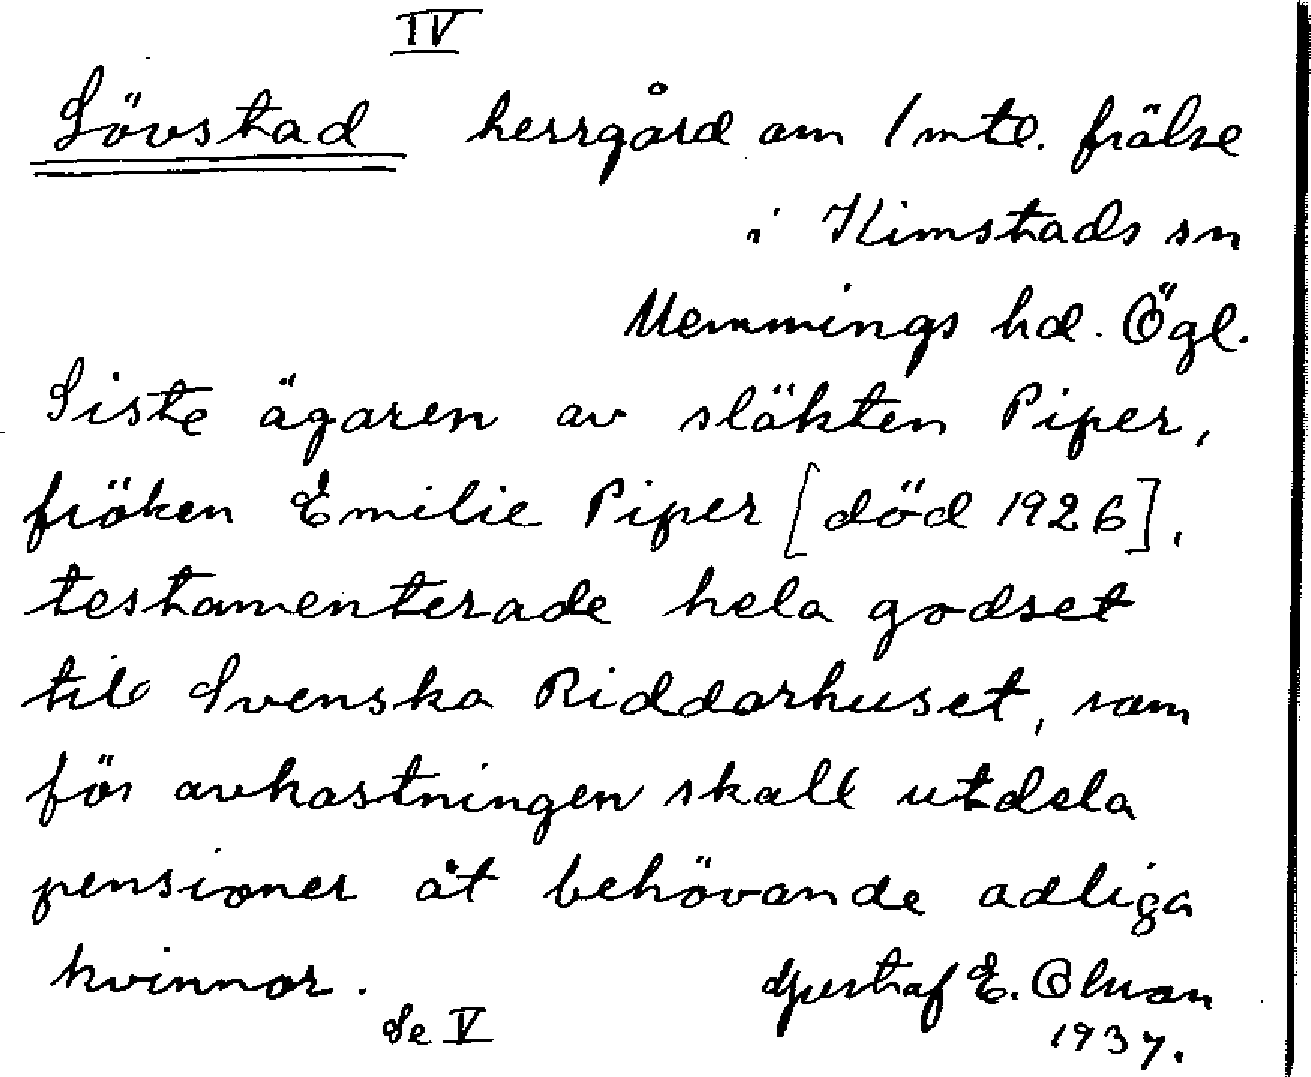 IV
Lövstad herrgård om 1 mtl. frälse
i Kimstads sn
Memmings hd. Ögl.
Siste ägaren av släkten Piper,
fröken Emilie Piper [död 1926],
testamenterade hela godset
till Svenska Riddarhuset, som
för avkastningen skall utdela
pensioner åt behövande adliga
kvinnor.
Gustaf E. Olsson
Se V
1937.